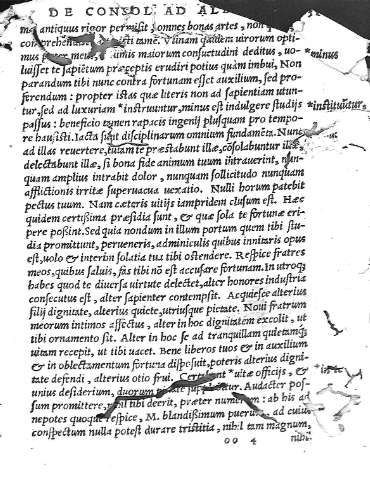 DE CONSOL AD AL
ma antiquus rigor permisit, omnes bonas artes, non
comprehendisti tamē. Vtinam quidem uirorum opti-
mus pater meus, nimis maiorum consuetudini deditus, uo- *minus
luisset te sapiētum præceptis erudiri potius quàm imbui, Non
parandum tibi nunc contra fortunam esset auxilium, sed pro-
ferendum: propter istas quæ literis non ad sapientiam utun-
tur, sed ad luxuriam *instruuntur, minus est indulgere studijs *instituūtur,
passus: beneficio tamen rapacis ingenij plusquam pro tempo-
re hausisti. Iacta sunt disciplinarum omnium fundamēta. Nunc
ad illas reuertere, tutam te præstabunt illæ, cōsolabuntur illæ,
delectabunt illæ, si bona fide animum tuum intrauerint, nun-
quam amplius intrabit dolor, nunquam sollicitudo nunquam
afflictionis irritæ superuacua uexatio. Nulli horum patebit
pectus tuum. Nam cæteris uitijs iampridem clusum est. Hæc
quidem certissima præsidia sunt, & quæ sola te fortunæ eri-
pere possint. Sed quia nondum in illum portum quem tibi stu-
dia promittunt, perueneris, adminiculis quibus innitaris opus
est, uolo & interim solatia tua tibi ostendere. Respice fratres
meos, quibus saluis, fas tibi nō est accusare fortunam. In utroq;
habes quod te diuersa uirtute delectet, alter honores industria
consecutus est, alter sapienter contempsit. Acquiesce alterius
filij dignitate, alterius quiete, utriusque pietate. Noui fratrum
meorum intimos affectus, alter in hoc dignitatem excolit, ut
tibi ornamento sit. Alter in hoc se ad tranquillam quietamq;
uitam recepit, ut tibi uacet. Bene liberos tuos & in auxilium
& in oblectamentum fortuna disposuit, poteris alterius digni-
tate defendi, alterius otio frui. Certabunt *uitæ officijs, &
unius desiderium, duorum pietate supplebitur. Audacter pos-
sum promittere, nihil tibi deerit, præter numerum: ab his ad
nepotes quoque respice, M. blandissimum puerum, ad cuius
conspectum nulla potest durare tristitia, nihil tam magnum,
oo 4 nihil